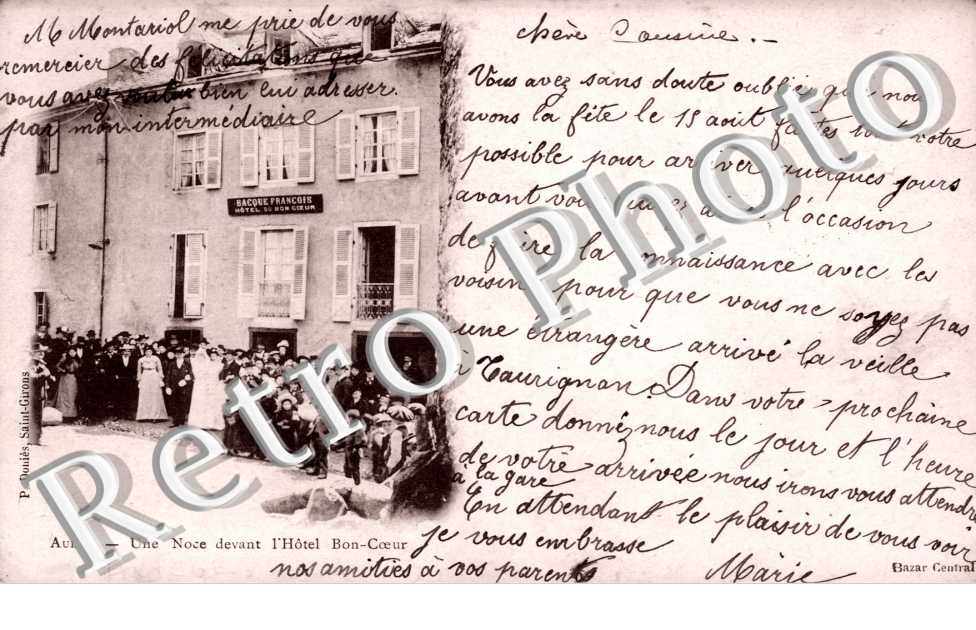 M Montariol me prie de vous
remercier des félicitations que
vous avez bien lui adresser.
par mon intermédiaire
BACQUE FRANÇOIS
HÔTEL DU BON CŒUR
P. Doniès, Saint-Girons
chère Cousine. -
Vous avez sans doute oublié que nous
avons la fête le 15 août faites tout votre
possible pour arriver quelques jours
avant vous l'occasion
de faire la connaissance avec les
voisins pour que vous ne soyez pas
une étrangère arrivé la veille
à Taurignan. Dans votre prochaine
carte donnéznous le jour et l'heure
de votre arrivée nous irons vous attendre
à la gare
En attendant le plaisir de vous voir
je vous embrasse
nos amitiés à vos parents
Marie
— Une Noce devant l'Hôtel Bon-Cœur
Bazar Central
Retro Photo